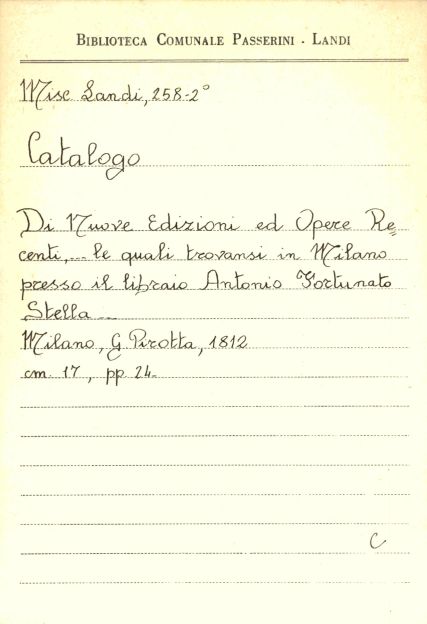 BIBLIOTECA COMUNALE PASSERINI - LANDI
Misc Landi, 258-2°
Catalogo
Di Nuove Edizioni ed Opere Re=
centi,... le quali trovansi in Milano
presso il libraio Antonio Fortunato
Stella...
Milano, G. Pirotta, 1812
cm. 17, pp. 24.
C